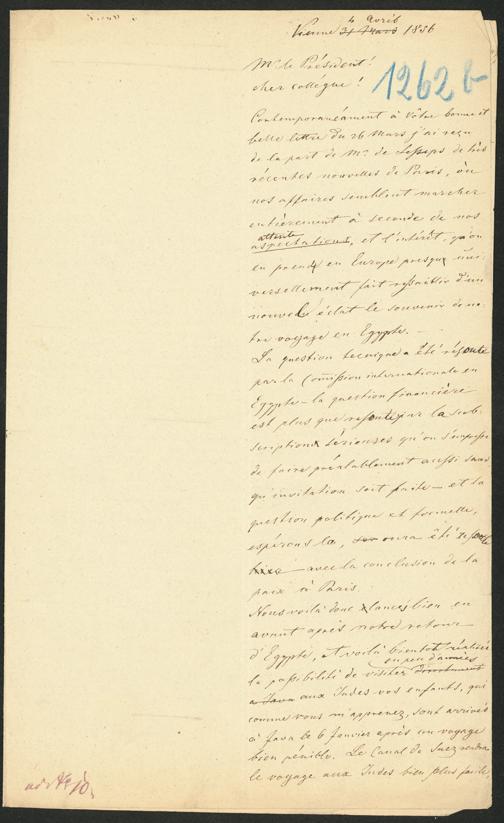 4 avril
Vienne 31 Mars 1856
Mr. le Président!
cher collégue!
1262 b
Contemporanéamént à Vôtre bonne et
belle lettre du 26 Mars j'ai reçu
de la part de Mr. de Lesseps de très
récentes nouvelles de Paris, où
nos affaires semblent marcher
entièrement à seconde de nos
attente
aspectations, et l'intérêt, qu'on
en prend en Europe presque uni-
versellement fait rejaillir d'un
nouvel éclat le souvenir de no-
tre voyage en Egypte. —
La question tecnique a été résoute
par la Comission internationale en
Egypte — la question financière
est plus que resoute par la sub-
scription serieuses qu'on s'empresse
de faire préalablement aussi sans
qu'invitation soit faite — et la
question politique et formelle,
espérons la, aura été resoute
avec la conclusion de la
paix à Paris.
Nous voilà donc lancés bien en
avant après notre retour
d'Egypte, et voilà bientot réalisée
en peu d'années
la possibilité de visiter
a Java aux Indes vos enfants, qui
comme vous m'apprenez, sont arrivés
à Java le 6 Janvier après un voyage
bien pénible. Le Canal de Suez rendra
le voyage aux Indes bien plus facile,
ad No 10.